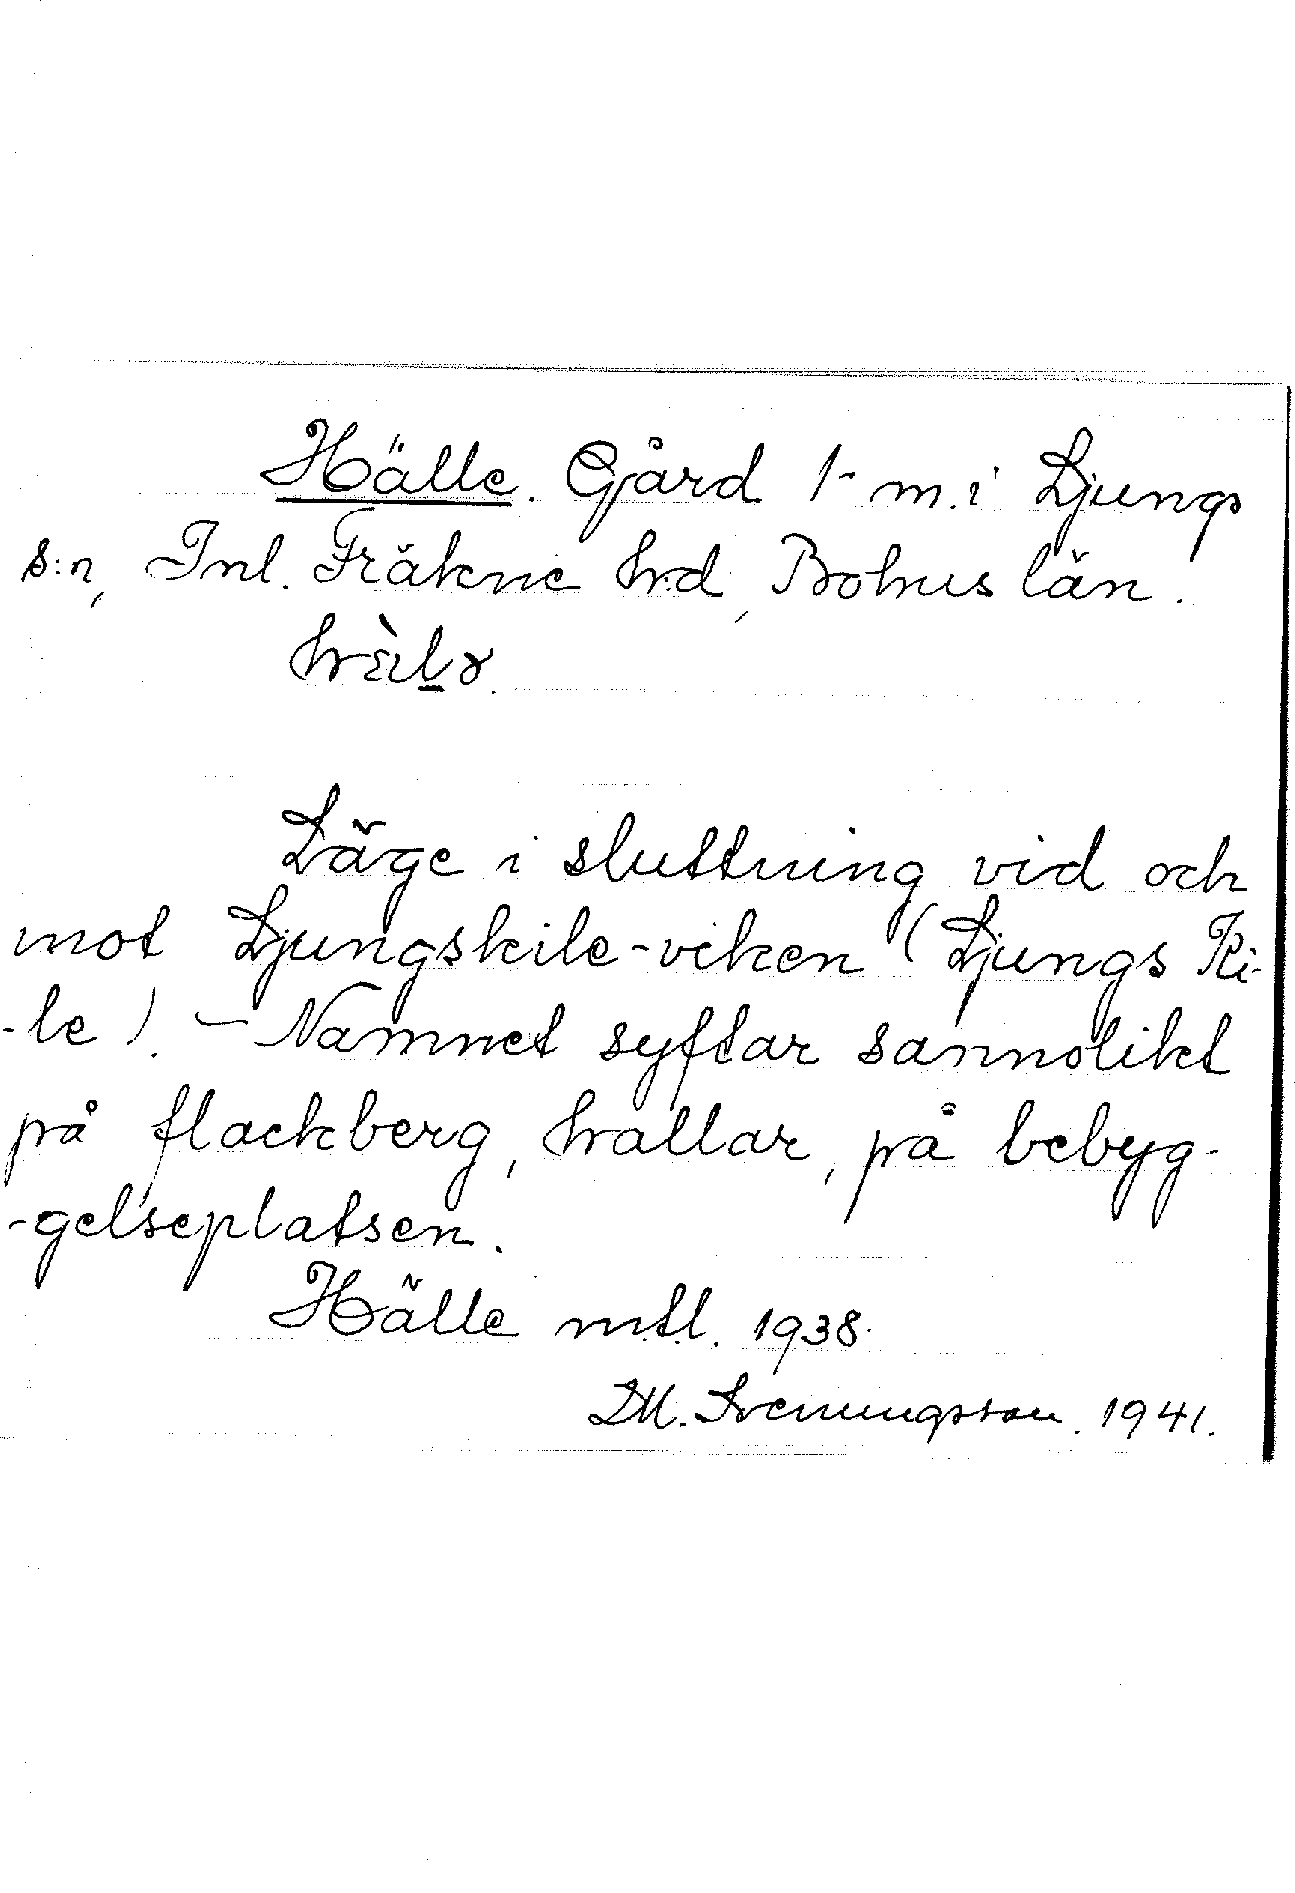 Hälle. Gård 1- m. i Ljungs
s:n, Inl. Fräkne hrd, Bohus län.
Läge i sluttning vid och
mot Ljungskile-viken (Ljungs Ki-
-le). - Namnet syftar sannolikt
på flackberg, hällar, på bebyg-
-gelseplatsen.
Hälle mtl. 1938.
D.M. Svenningsson. 1941.